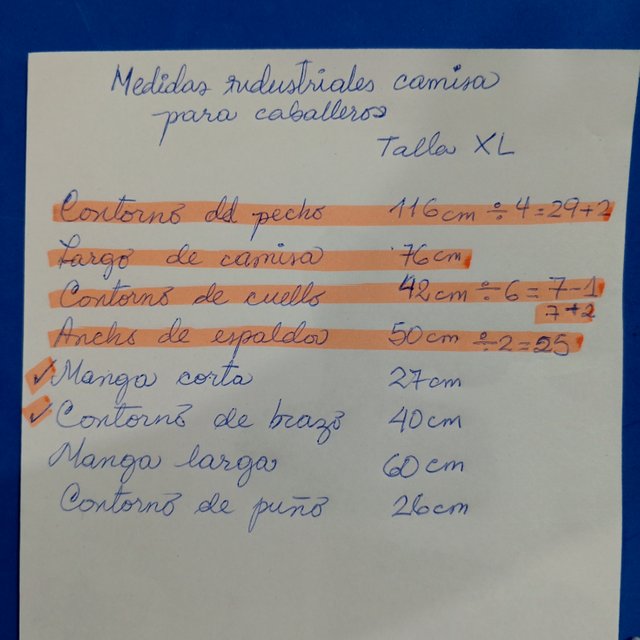 Medidas industriales camisa
para caballeros
Talla XL
Contorno del pecho 116cm ÷ 4 = 29+2
Largo de camisa 76cm
Contorno de cuello 42cm ÷ 6 = 7-1
7+2
Ancho de espalda 50cm ÷ 2 = 25
✓ Manga corta 27cm
✓ Contorno de brazo 40cm
Manga larga 60cm
Contorno de puño 26cm